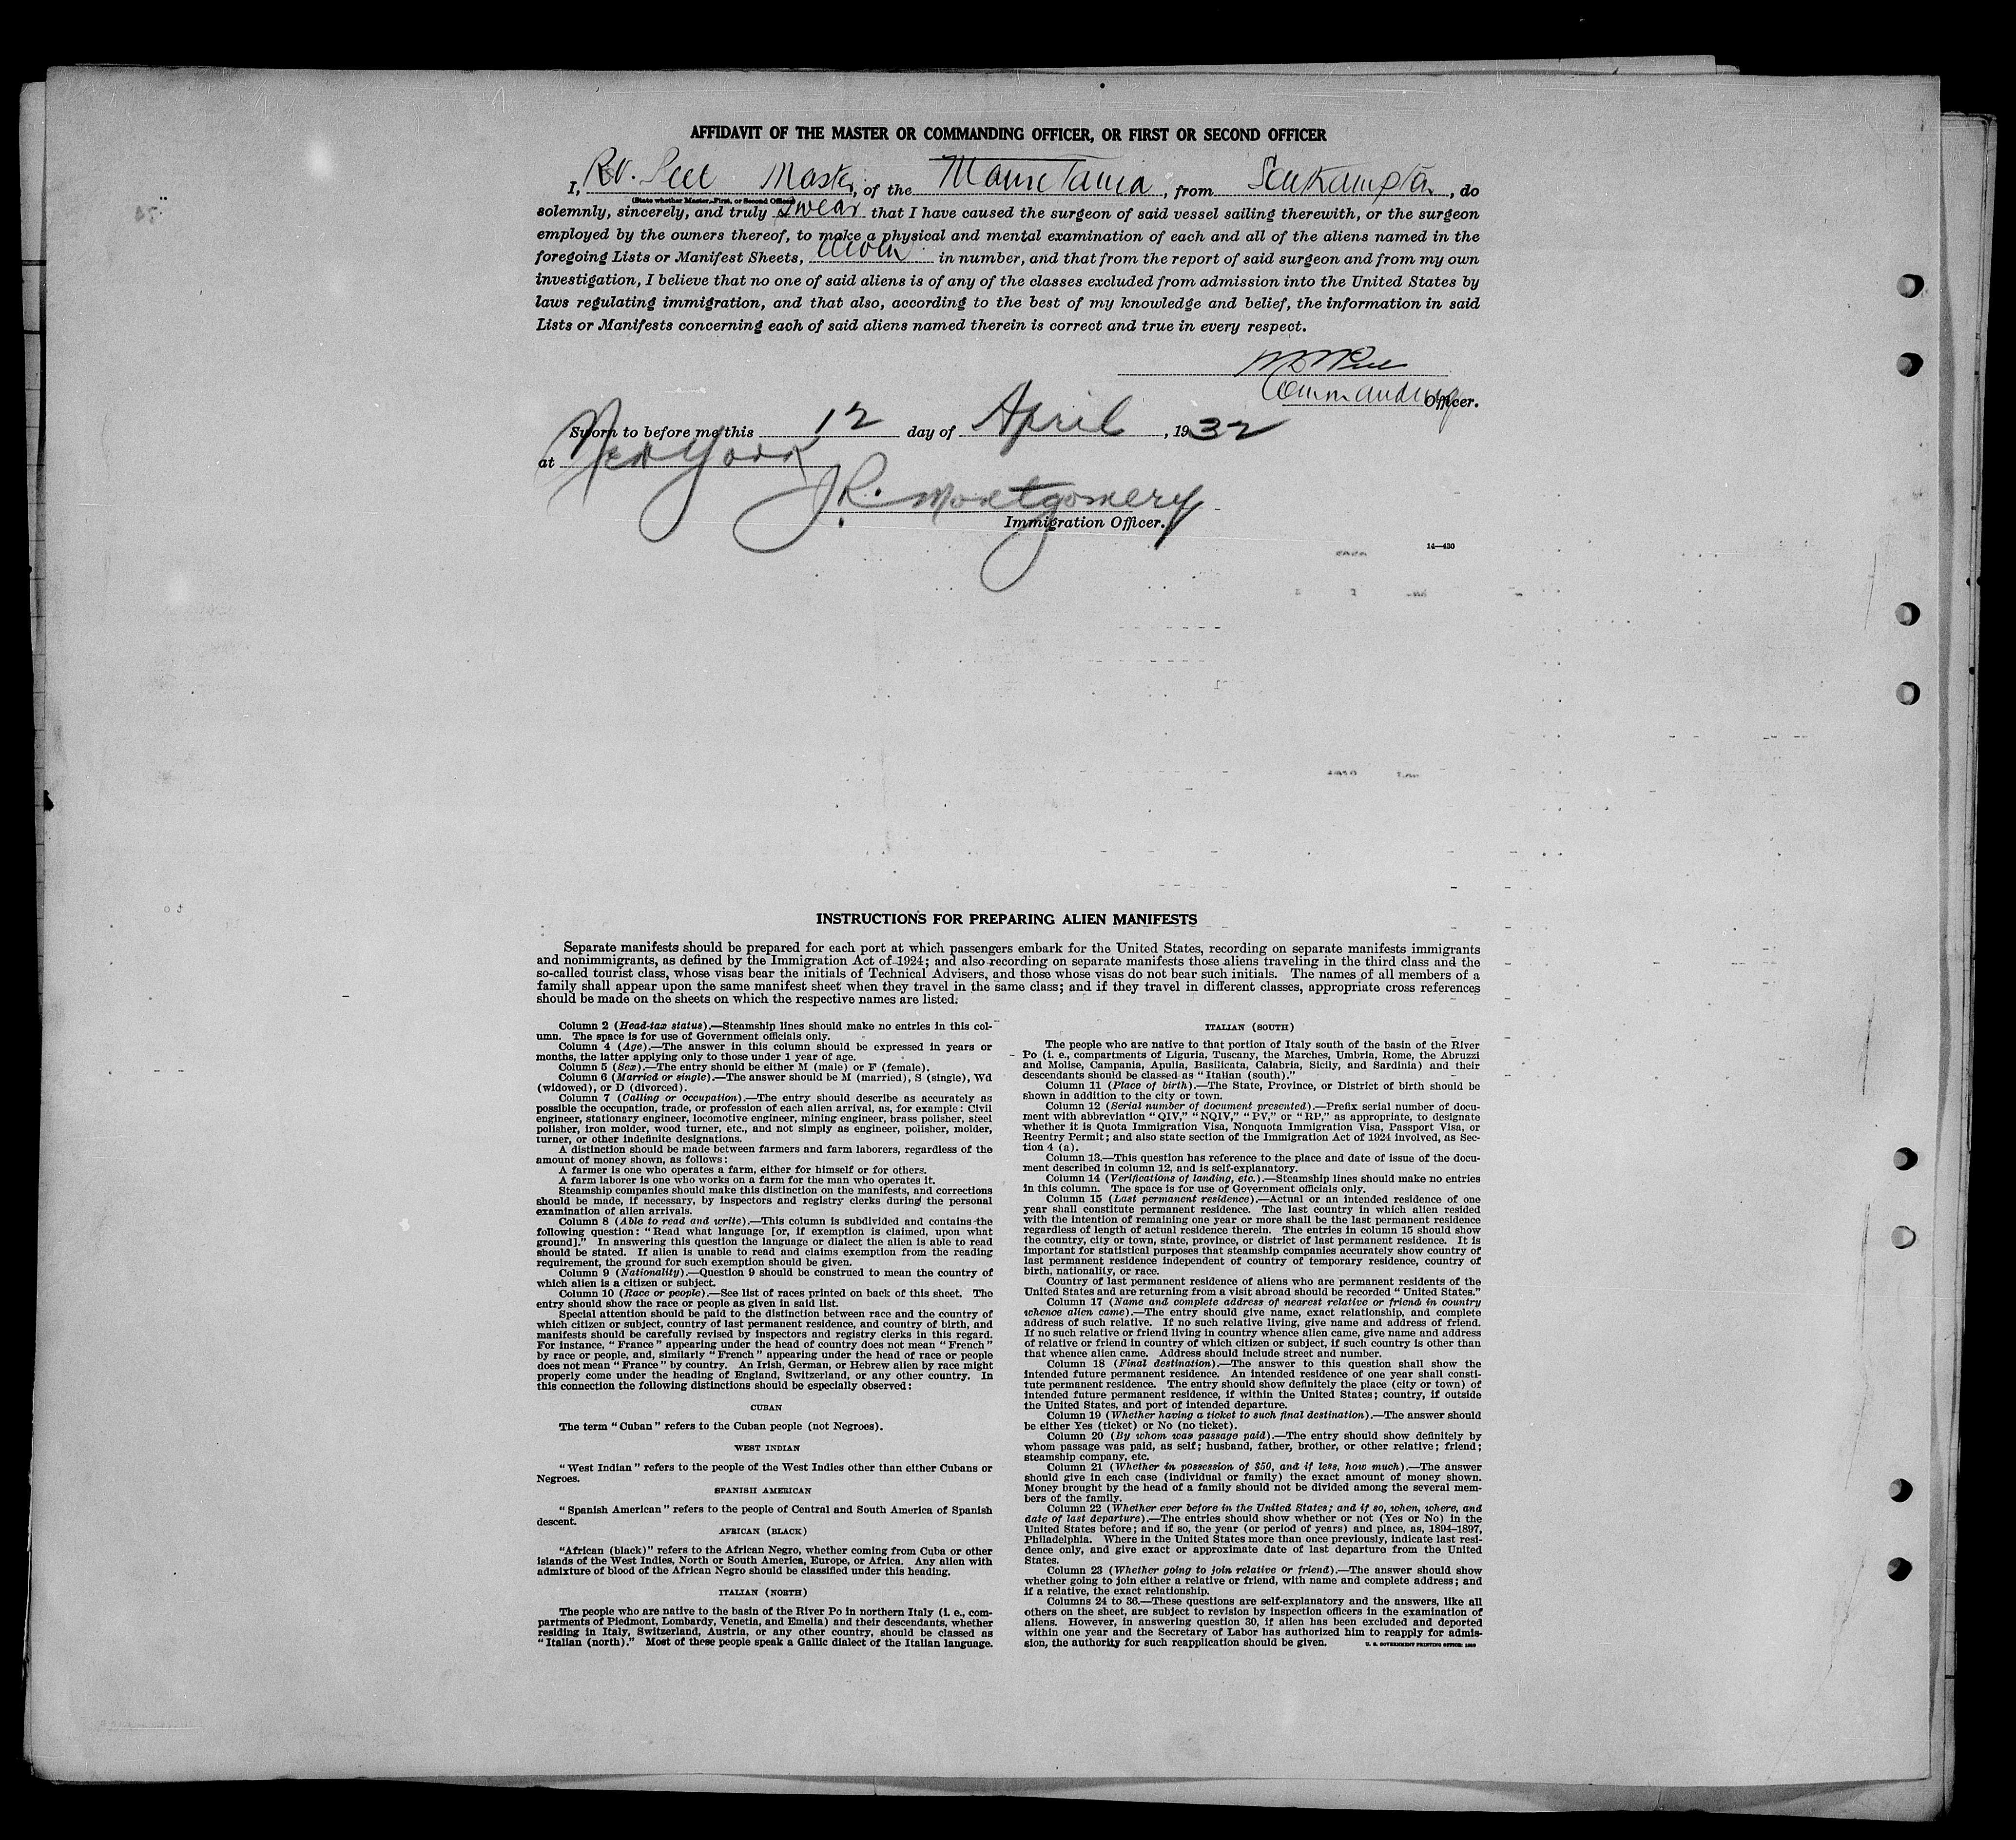 AFFIDAVIT OF THE MASTER OR COMMANDING OFFICER, OR FIRST OR SECOND OFFICER
I, R.V. Peel Master, of the Mauretania, from Southampton, do
(State whether Master, First, or Second Officer)
solemnly, sincerely, and truly swear that I have caused the surgeon of said vessel sailing therewith, or the surgeon
employed by the owners thereof, to make a physical and mental examination of each and all of the aliens named in the
foregoing Lists or Manifest Sheets, in number, and that from the report of said surgeon and from my own
investigation, I believe that no one of said aliens is of any of the classes excluded from admission into the United States by
laws regulating immigration, and that also, according to the best of my knowledge and belief, the information in said
Lists or Manifests concerning each of said aliens named therein is correct and true in every respect.
Commanding Officer.
Sworn to before me this 12 day of April, 1932
at New York
J.R. Montgomery
Immigration Officer.
14—430
INSTRUCTIONS FOR PREPARING ALIEN MANIFESTS
Separate manifests should be prepared for each port at which passengers embark for the United States, recording on separate manifests immigrants
and nonimmigrants, as defined by the Immigration Act of 1924; and also recording on separate manifests those aliens traveling in the third class and the
so-called tourist class, whose visas bear the initials of Technical Advisers, and those whose visas do not bear such initials. The names of all members of a
family shall appear upon the same manifest sheet when they travel in the same class; and if they travel in different classes, appropriate cross references
should be made on the sheets on which the respective names are listed.
Column 2 (Head-tax status).—Steamship lines should make no entries in this col-
umn. The space is for use of Government officials only.
Column 4 (Age).—The answer in this column should be expressed in years or
months, the latter applying only to those under 1 year of age.
Column 5 (Sex).—The entry should be either M (male) or F (female).
Column 6 (Married or single).—The answer should be M (married), S (single), Wd
(widowed), or D (divorced).
Column 7 (Calling or occupation).—The entry should describe as accurately as
possible the occupation, trade, or profession of each alien arrival, as, for example: Civil
engineer, stationary engineer, locomotive engineer, mining engineer, brass polisher, steel
polisher, iron molder, wood turner, etc., and not simply as engineer, polisher, molder,
turner, or other indefinite designations.
A distinction should be made between farmers and farm laborers, regardless of the
amount of money shown, as follows:
A farmer is one who operates a farm, either for himself or for others.
A farm laborer is one who works on a farm for the man who operates it.
Steamship companies should make this distinction on the manifests, and corrections
should be made, if necessary, by inspectors and registry clerks during the personal
examination of alien arrivals.
Column 8 (Able to read and write).—This column is subdivided and contains the
following question: "Read what language [or, if exemption is claimed, upon what
ground]." In answering this question the language or dialect the alien is able to read
should be stated. If alien is unable to read and claims exemption from the reading
requirement, the ground for such exemption should be given.
Column 9 (Nationality).—Question 9 should be construed to mean the country of
which alien is a citizen or subject.
Column 10 (Race or people).—See list of races printed on back of this sheet. The
entry should show the race or people as given in said list.
Special attention should be paid to the distinction between race and the country of
which citizen or subject, country of last permanent residence, and country of birth, and
manifests should be carefully revised by inspectors and registry clerks in this regard.
For instance, "France" appearing under the head of country does not mean "French"
by race or people, and, similarly "French" appearing under the head of race or people
does not mean "France" by country. An Irish, German, or Hebrew alien by race might
properly come under the heading of England, Switzerland, or any other country. In
this connection the following distinctions should be especially observed:
CUBAN
The term "Cuban" refers to the Cuban people (not Negroes).
WEST INDIAN
"West Indian" refers to the people of the West Indies other than either Cubans or
Negroes.
SPANISH AMERICAN
"Spanish American" refers to the people of Central and South America of Spanish
descent.
AFRICAN (BLACK)
"African (black)" refers to the African Negro, whether coming from Cuba or other
islands of the West Indies, North or South America, Europe, or Africa. Any alien with
admixture of blood of the African Negro should be classified under this heading.
ITALIAN (NORTH)
The people who are native to the basin of the River Po in northern Italy (i. e., com-
partments of Piedmont, Lombardy, Venetia, and Emelia) and their descendants, whether
residing in Italy, Switzerland, Austria, or any other country, should be classed as
"Italian (north)." Most of these people speak a Gallic dialect of the Italian language.
ITALIAN (SOUTH)
The people who are native to that portion of Italy south of the basin of the River
Po (i. e., compartments of Liguria, Tuscany, the Marches, Umbria, Rome, the Abruzzi
and Molise, Campania, Apulia, Basilicata, Calabria, Sicily, and Sardinia) and their
descendants should be classed as "Italian (south)."
Column 11 (Place of birth).—The State, Province, or District of birth should be
shown in addition to the city or town.
Column 12 (Serial number of document presented).—Prefix serial number of docu-
ment with abbreviation "QIV," "NQIV," "PV," or "RP," as appropriate, to designate
whether it is Quota Immigration Visa, Nonquota Immigration Visa, Passport Visa, or
Reentry Permit; and also state section of the Immigration Act of 1924 involved, as Sec-
tion 4 (a).
Column 13.—This question has reference to the place and date of issue of the docu-
ment described in column 12, and is self-explanatory.
Column 14 (Verifications of landing, etc.).—Steamship lines should make no entries
in this column. The space is for use of Government officials only.
Column 15 (Last permanent residence).—Actual or an intended residence of one
year shall constitute permanent residence. The last country in which alien resided
with the intention of remaining one year or more shall be the last permanent residence
regardless of length of actual residence therein. The entries in column 15 should show
the country, city or town, state, province, or district of last permanent residence. It is
important for statistical purposes that steamship companies accurately show country of
last permanent residence independent of country of temporary residence, country of
birth, nationality, or race.
Country of last permanent residence of aliens who are permanent residents of the
United States and are returning from a visit abroad should be recorded "United States."
Column 17 (Name and complete address of nearest relative or friend in country
whence alien came).—The entry should give name, exact relationship, and complete
address of such relative. If no such relative living, give name and address of friend.
If no such relative or friend living in country whence alien came, give name and address
of relative or friend in country of which citizen or subject, if such country is other than
that whence alien came. Address should include street and number.
Column 18 (Final destination).—The answer to this question shall show the
intended future permanent residence. An intended residence of one year shall consti-
tute permanent residence. The entry should show definitely the place (city or town) of
intended future permanent residence, if within the United States; country, if outside
the United States, and port of intended departure.
Column 19 (Whether having a ticket to such final destination).—The answer should
be either Yes (ticket) or No (no ticket).
Column 20 (By whom was passage paid).—The entry should show definitely by
whom passage was paid, as self; husband, father, brother, or other relative; friend;
steamship company, etc.
Column 21 (Whether in possession of $50, and if less, how much).—The answer
should give in each case (individual or family) the exact amount of money shown.
Money brought by the head of a family should not be divided among the several mem-
bers of the family.
Column 22 (Whether ever before in the United States; and if so, when, where, and
date of last departure).—The entries should show whether or not (Yes or No) in the
United States before; and if so, the year (or period of years) and place, as, 1894–1897,
Philadelphia. Where in the United States more than once previously, indicate last resi-
dence only, and give exact or approximate date of last departure from the United
States.
Column 23 (Whether going to join relative or friend).—The answer should show
whether going to join either a relative or friend, with name and complete address; and
if a relative, the exact relationship.
Columns 24 to 36.—These questions are self-explanatory and the answers, like all
others on the sheet, are subject to revision by inspection officers in the examination of
aliens. However, in answering question 30, if alien has been excluded and deported
within one year and the Secretary of Labor has authorized him to reapply for admis-
sion, the authority for such reapplication should be given.
U. S. GOVERNMENT PRINTING OFFICE: